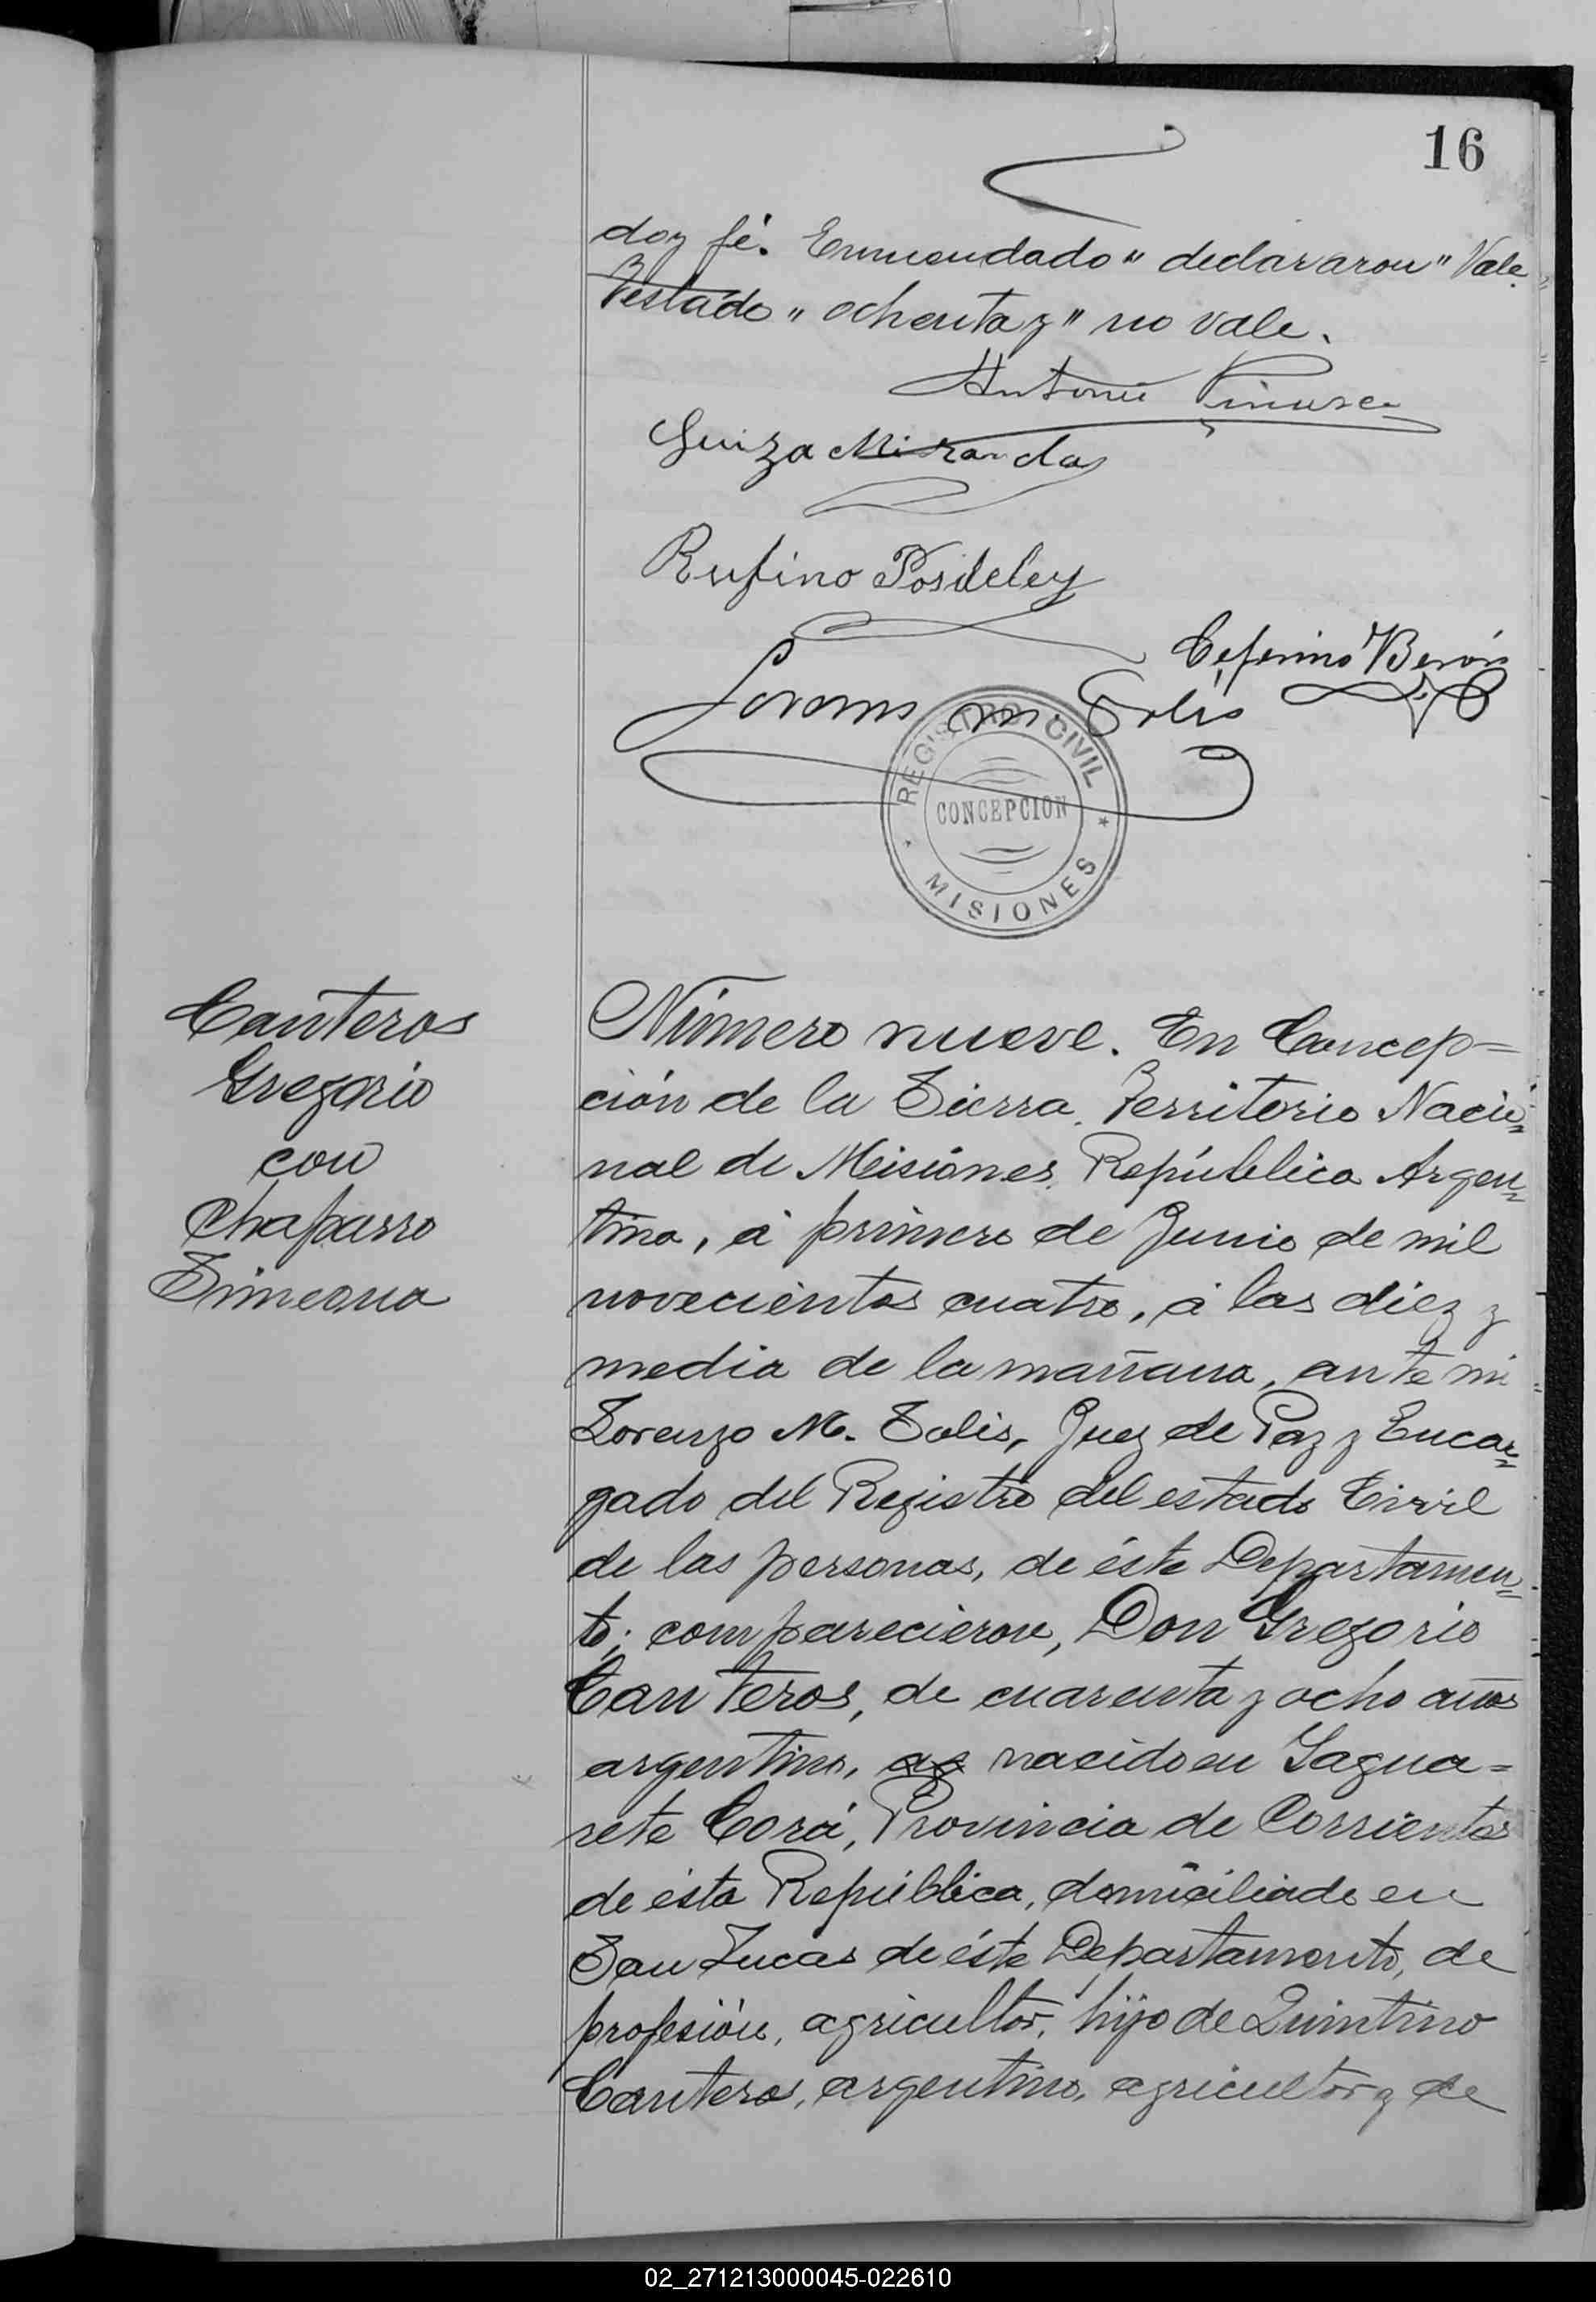 16
doy fé. Enmendado "declararon" Vale.
Testado "ochenta y" no vale.
Antonio
Luiza Miranda
Rufino Posdeley
Ceferino Berón
Lorenzo M. Solis
REGISTRO CIVIL
CONCEPCION
MISIONES
Canteros
Gregorio
con
Chaparro
Simeona
Número nueve. En Concep=
ción de la Sierra, Territorio Nacio=
nal de Misiónes, República Argen=
tina, á primero de Junio de mil
novecientos cuatro, á las diéz y
media de la mañana, ante mi
Lorenzo M. Solis, Juez de Paz y Encar=
gado del Registro del estado Civil
de las personas, de éste Departamen=
to; comparecieron, Don Gregorio
Canteros, de cuarenta y ocho años
argentino, nacido en Yagua=
rete Corá, Provincia de Corrientes
de ésta República, domiciliado en
San Lucas de éste Departamento, de
profesión, agricultor, hijo de Quintino
Canteros, argentino, agricultor y de
02_271213000045-022610